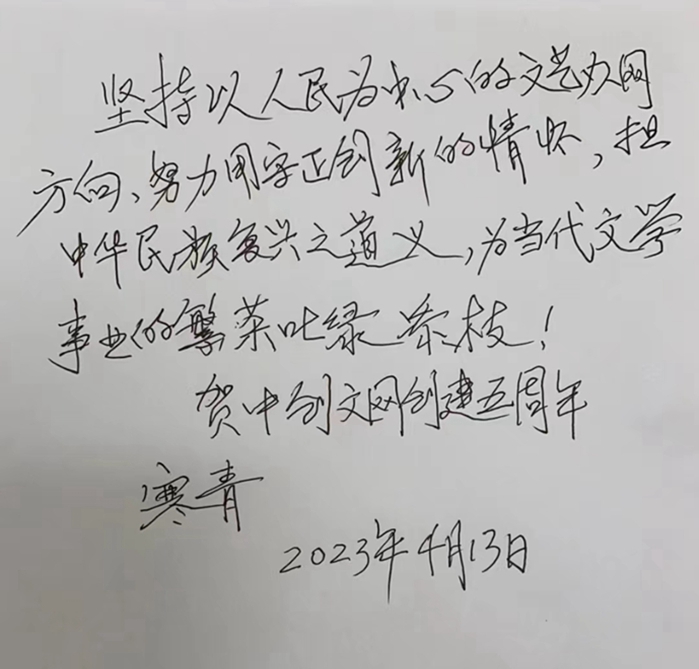 坚持以人民为中心的文艺办网
方向、努力用守正创新的情怀,担
中华民族复兴之道义,为当代文学
事业的繁荣吐绿添枝!
贺中创文网创建五周年
寒青
2023年4月13日